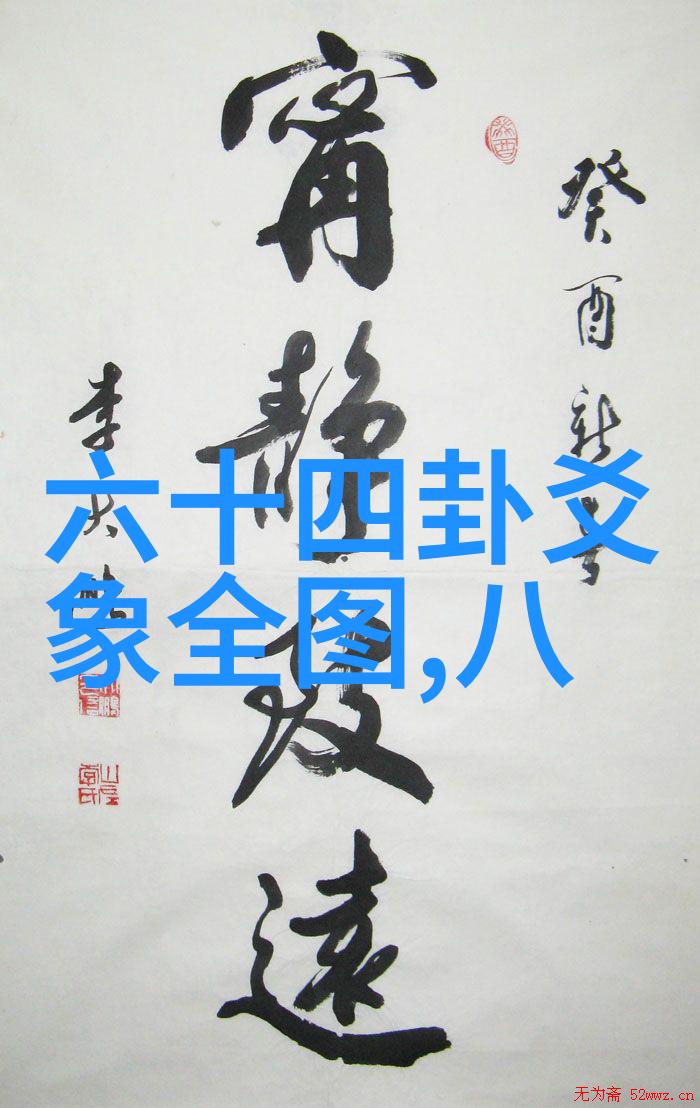 癸酉新春
甯靜致遠
李大
六十四卦爻
象全图,八
无为斋 52wwz.cn